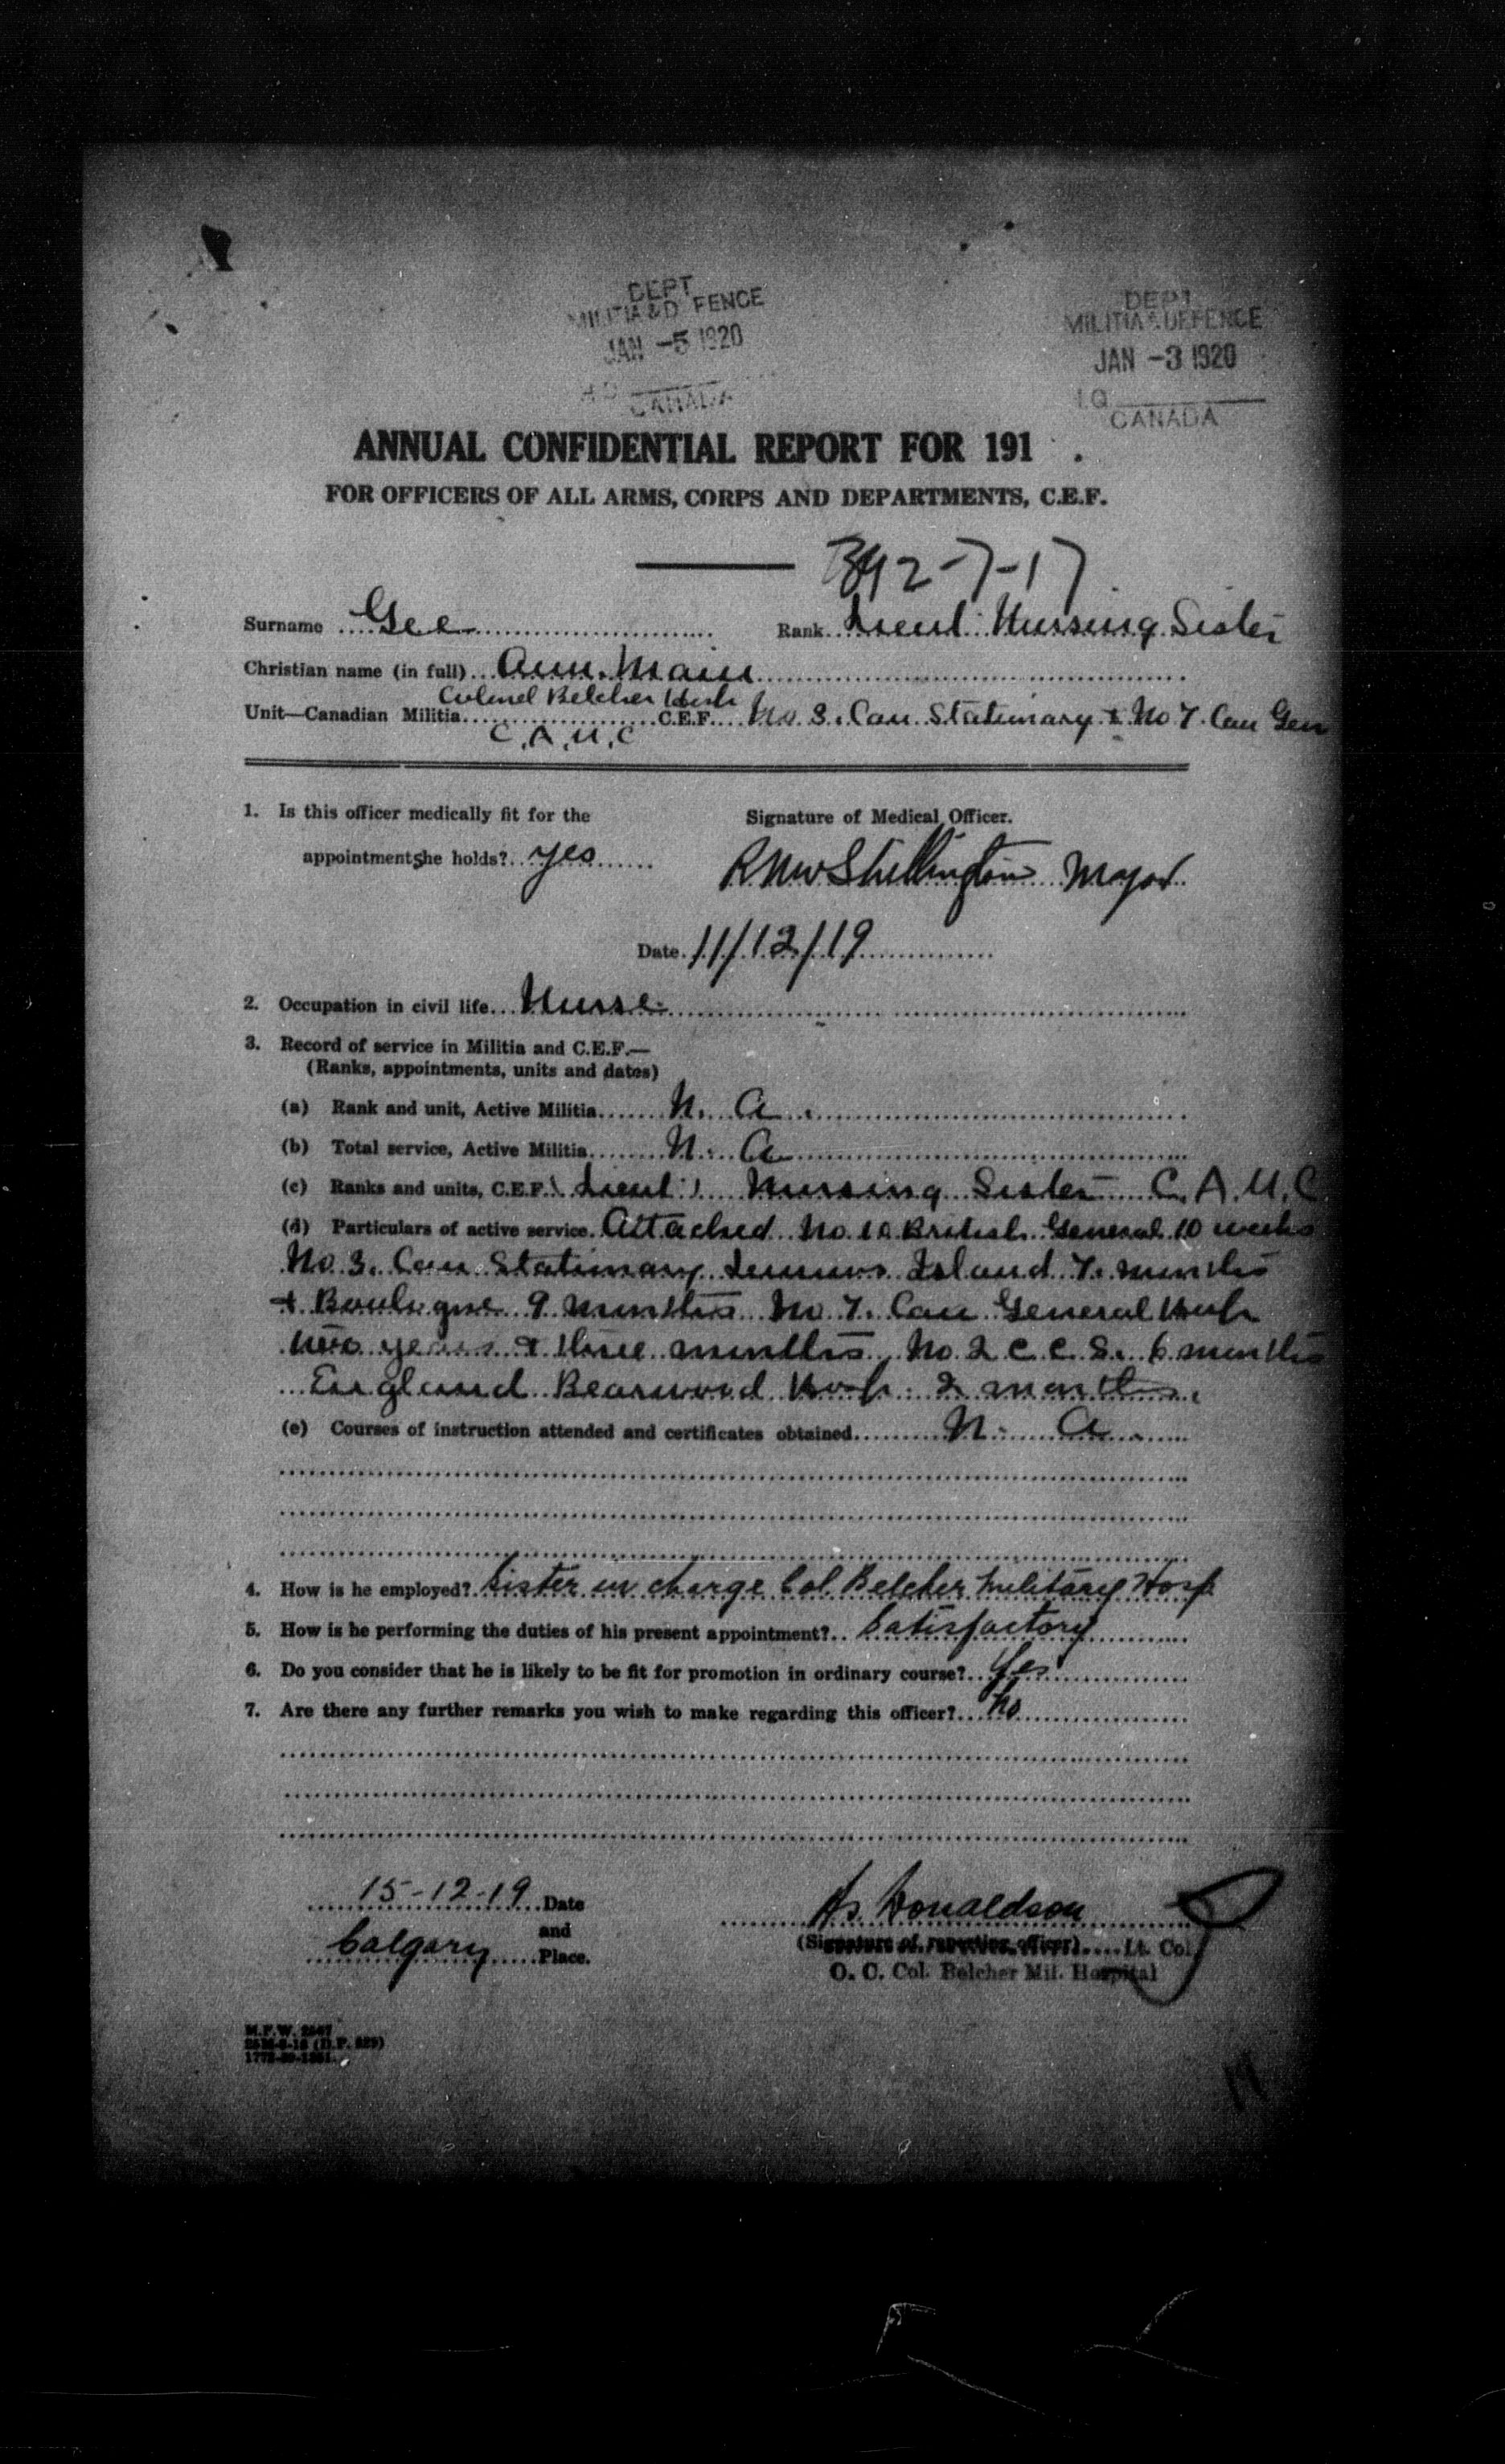 DEPT.
MILITIA & D FENCE
JAN -5 1920
CANADA
DEPT.
MILITIA & DEFENCE
JAN -3 1920
CANADA
ANNUAL CONFIDENTIAL REPORT FOR 191 .
FOR OFFICERS OF ALL ARMS, CORPS AND DEPARTMENTS, C.E.F.
392-7-17
Surname Gee Rank Lieut: Nursing Sister
Christian name (in full) Ann. Main
Colonel Belcher Hosp
Unit—Canadian Militia C.E.F. No 3. Can Stationary & No 7. Can Gen
C.A.M.C
1. Is this officer medically fit for the Signature of Medical Officer.
appointment She holds? Yes R M W Shillington Major.
Date 11/12/19
2. Occupation in civil life Nurse
3. Record of service in Militia and C.E.F.—
(Ranks, appointments, units and dates)
(a) Rank and unit, Active Militia N. A.
(b) Total service, Active Militia N. A
(c) Ranks and units, C.E.F. (Lieut:) Nursing Sister C.A.M.C
(d) Particulars of active service. Attached No. 10 British General 10 weeks
No 3. Can Stationary Lemnos Island 7. months
& Boulogne 9 months No 7. Can General Hosp
two years & three months, No 2 C C S. 6 months
England Bearwood Hosp. 2 months.
(e) Courses of instruction attended and certificates obtained N. A.
4. How is he employed? Sister in charge Col. Belcher Military Hosp
5. How is he performing the duties of his present appointment? Satisfactory
6. Do you consider that he is likely to be fit for promotion in ordinary course? Yes
7. Are there any further remarks you wish to make regarding this officer? No
15-12-19 Date
and
Calgary Place.
Donaldson
(Signature of reporting officer) Lt. Col
O. C. Col. Belcher Mil. Hospital
M.F.W. 2647